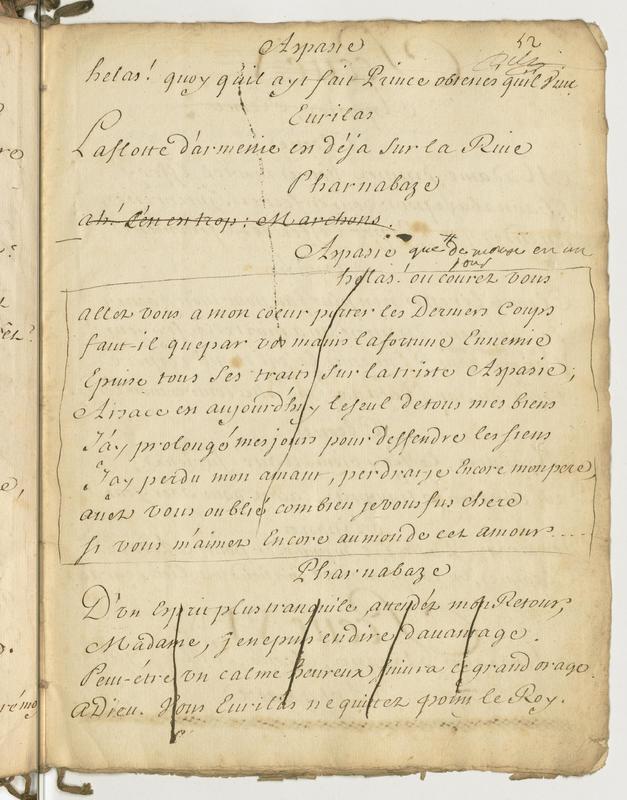 52
Aspasie
helas! quoy quil ayt fait Prince obtenes quil Viue
Eurilas
La flotte d'armenie en déja sur la Riue
Pharnabaze
ah! C'en en trop: Marchons.
Aspasie que de en un jour
helas! ou courez vous
allez vous a mon coeur porter les Derniers Coups
faut-il que par vos mains la fortune Ennemie
Epuise tous Ses traits Sur la triste Aspasie;
Arsace en aujourd'huy le seul de tous mes biens
J'ay prolongé mes jours pour deffendre les siens
J'ay perdu mon amant, perdraije Encore mon pere,
auez vous oublié combien je vous fus chere
Si vous m'aimez Encore au monde cet amour....
Pharnabaze
D'vn Esprit plus tranquile, attendéz mon Retour,
Madame, je ne puis en dire dauantage.
Peut-étre vn calme heureux suiura ce grand orage.
aDieu. Vous Eurilas ne quittez point le Roy.